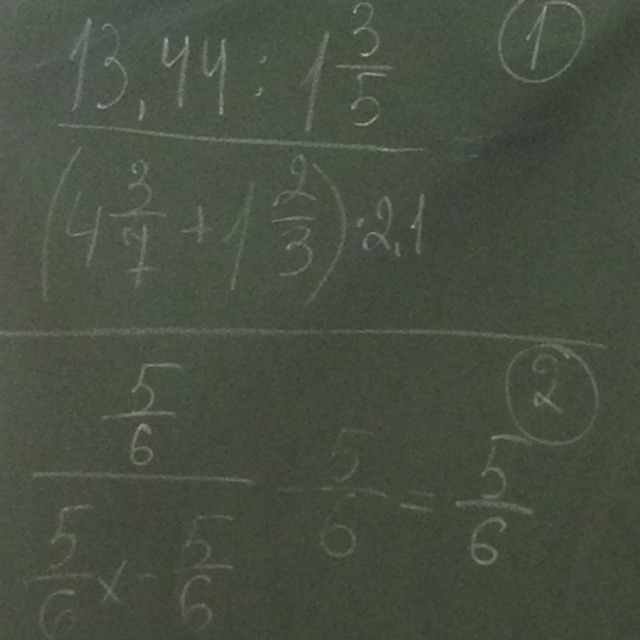 13,44 : 1 3/5 =
①
(4 3/7 + 1 2/3) · 2,1
②
5/6
5/6 x - 5/6
- 5/6 = 5/6